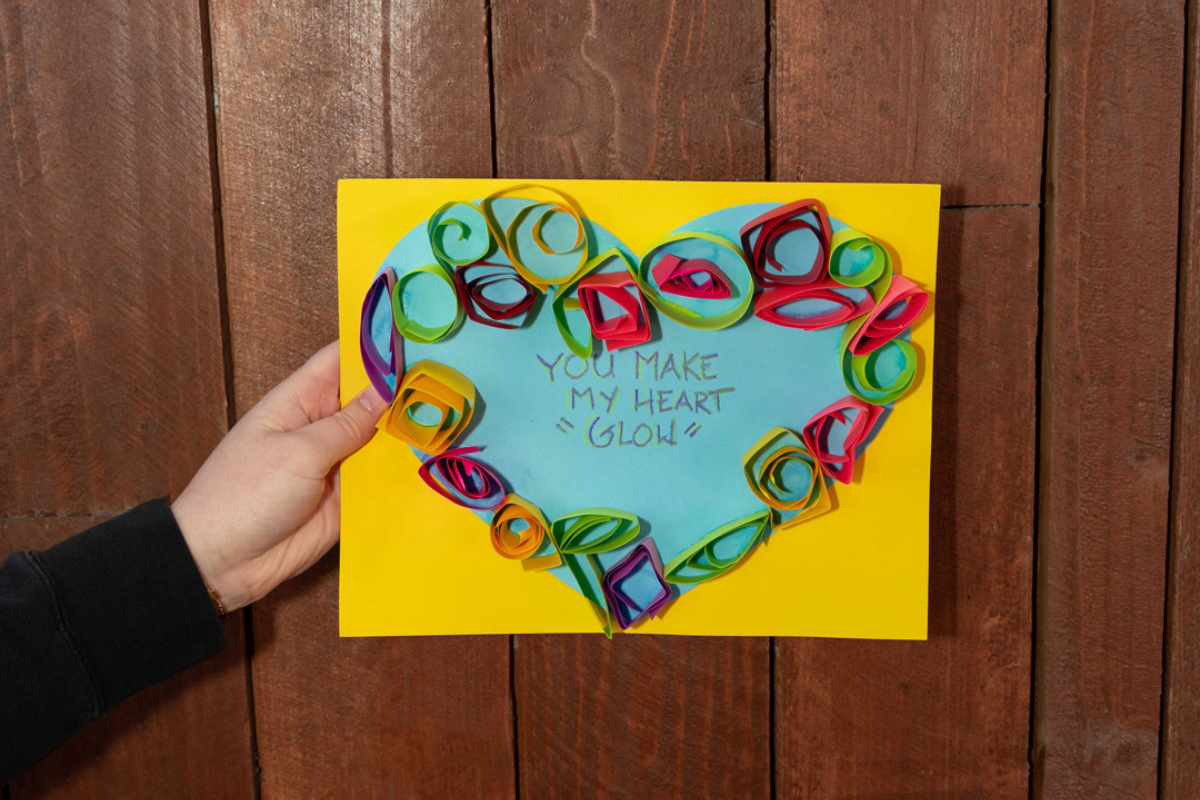 YOU MAKE
MY HEART
"GLOW"